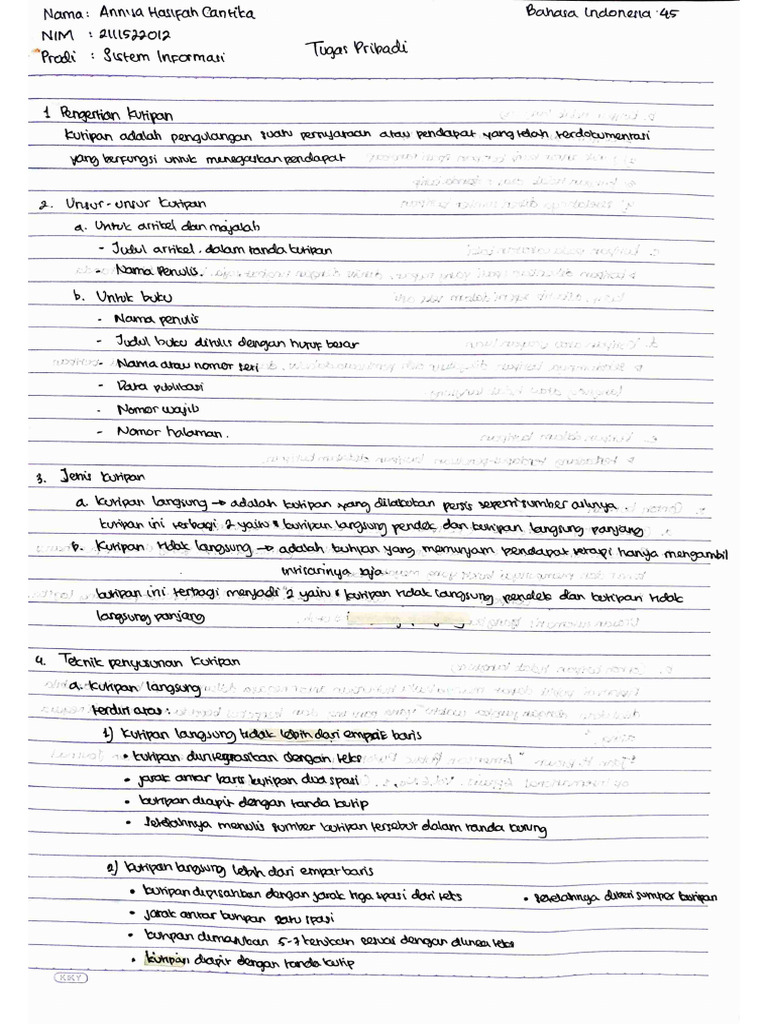 Nama : Annisa Hasifah Cantika
Bahasa Indonesia 45
NIM : 2111522012
Prodi : Sistem Informasi
Tugas Pribadi
1 Pengertian Kutipan
Kutipan adalah pengulangan suatu pernyataan atau pendapat yang telah terdokumentasi
yang berfungsi untuk menegaskan pendapat
2. Unsur-unsur Kutipan
a. Untuk artikel dan majalah
- Judul artikel dalam tanda kutipan
- Nama penulis.
b. Untuk buku
- Nama penulis
- Judul buku ditulis dengan huruf besar
- Nama atau nomor seri
- Data publikasi
- Nomor wajib
- Nomor halaman.
3. Jenis Kutipan
a. Kutipan langsung → adalah kutipan yang dilakukan persis seperti sumber aslinya
kutipan ini terbagi 2 yaitu : kutipan langsung pendek dan kutipan langsung panjang
b. Kutipan tidak langsung → adalah kutipan yang meminjam pendapat tetapi hanya mengambil
intisarinya saja
kutipan ini terbagi menjadi 2 yaitu : kutipan tidak langsung pendek dan kutipan tidak
langsung panjang
4. Teknik penyusunan kutipan
a. Kutipan langsung
terdiri atas :
1) Kutipan langsung tidak lebih dari empat baris
• kutipan diintegrasikan dengan teks
• jarak antar baris kutipan dua spasi
• kutipan diapit dengan tanda kutip
• setelahnya menulis sumber kutipan tersebut dalam tanda kurung
2) Kutipan langsung lebih dari empat baris
• kutipan dipisahkan dengan jarak tiga spasi dari teks
• setelahnya diberi sumber kutipan
• jarak antar kutipan satu spasi
• kutipan dimasukkan 5-7 ketukan sesuai dengan alinea teks
• kutipan diapit dengan tanda kutip
KKY